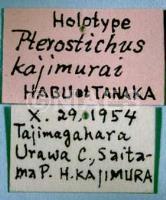 Holotype
Pterostichus
kajimurai
HABU et TANAKA
X. 29, 1954
Tajimagahara
Urawa C., Saita-
ma P. H. KAJIMURA